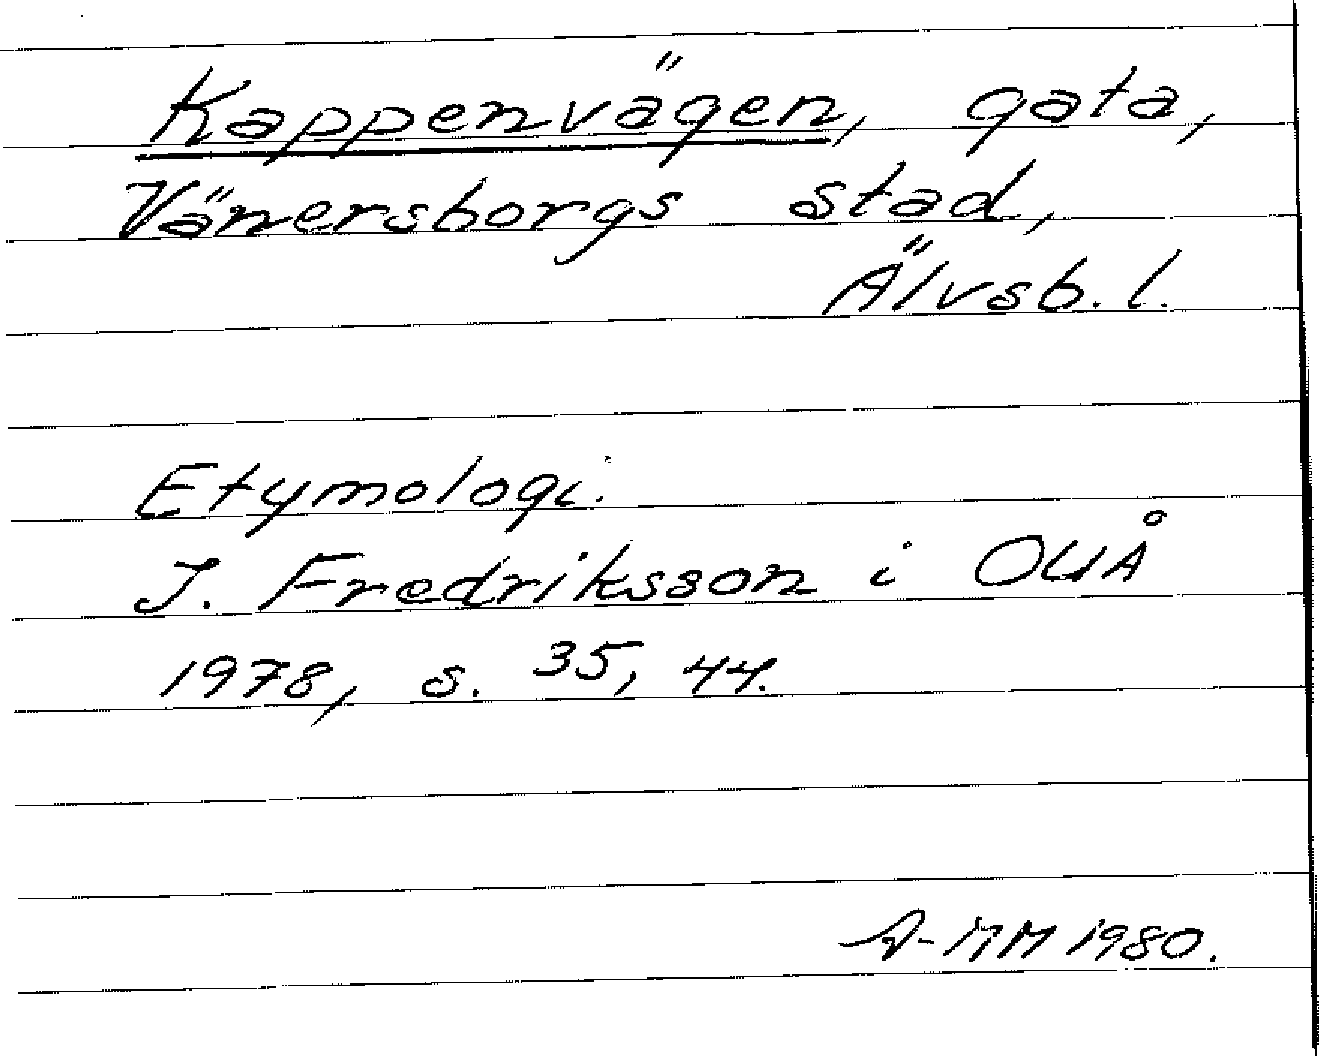 Kappenvägen, gata,
Vänersborgs stad,
Älvsb. l.
Etymologi.
I. Fredriksson i OUÅ
1978, s. 35, 44.
A-MM 1980.